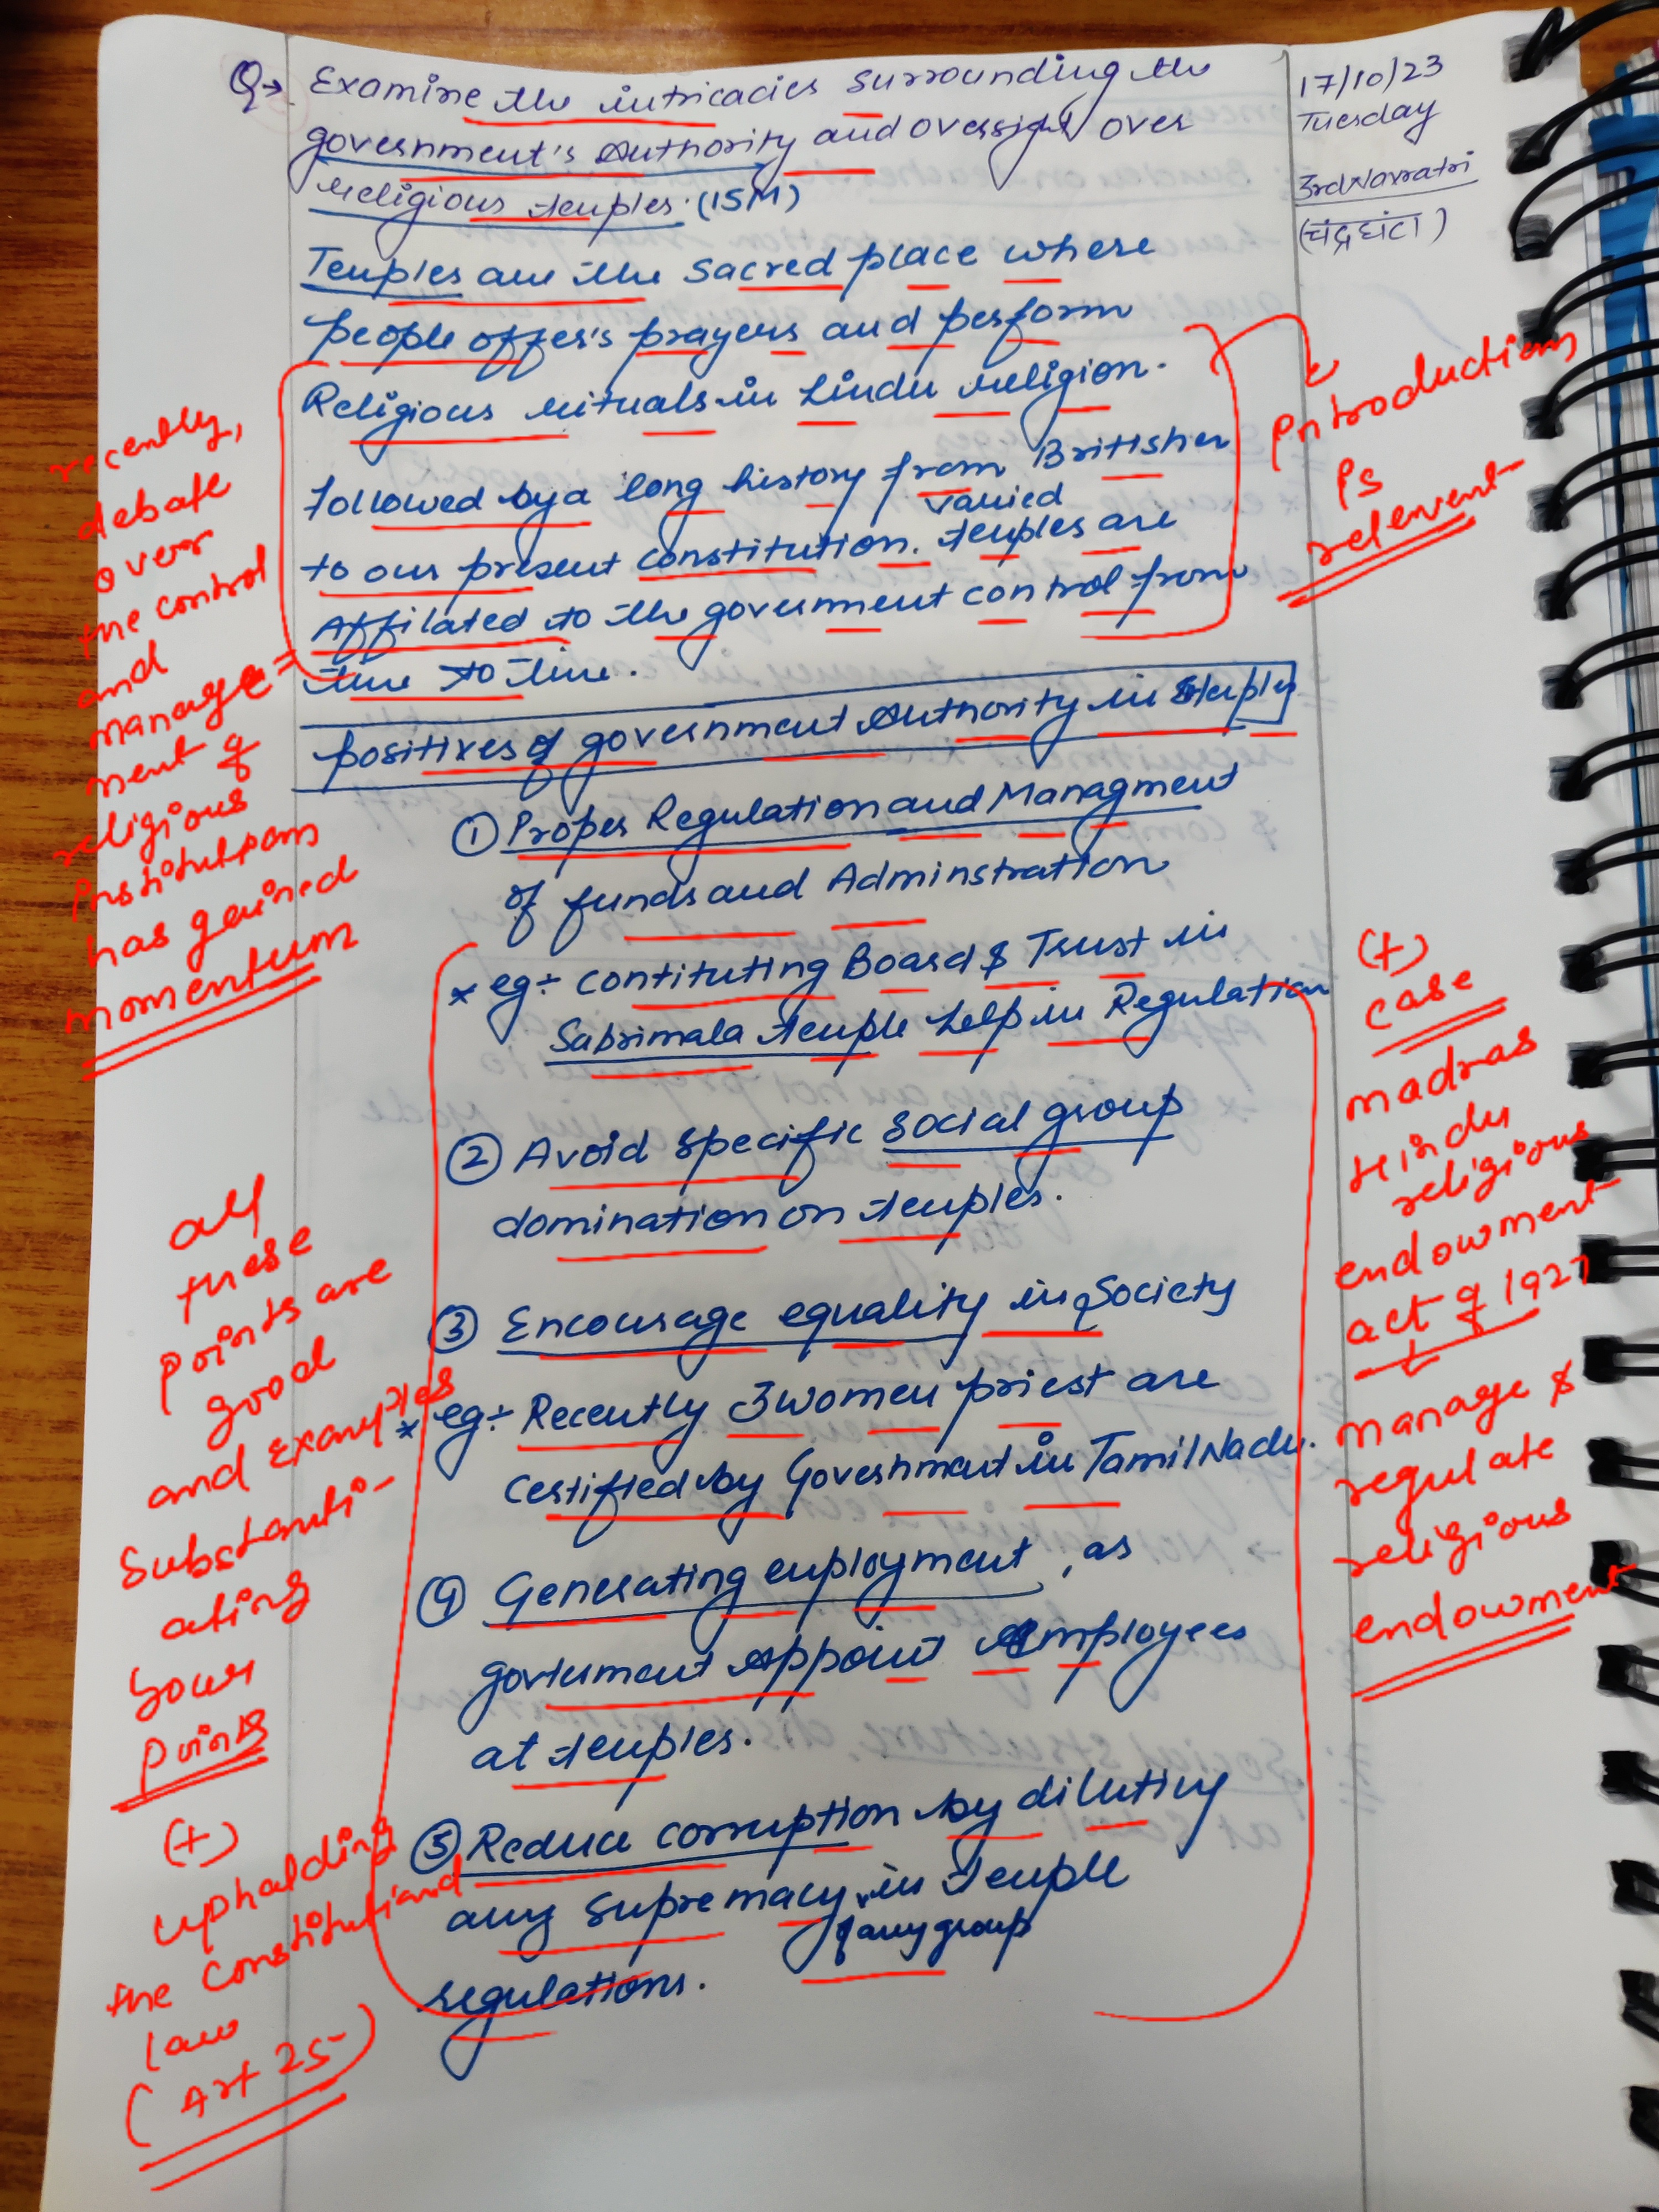 Q→ Examine the intricacies surrounding the
government's Authority and oversight over
religious temples. (15M)
17/10/23
Tuesday
3rd Navratri
(चंद्रघंटा)
Temples are the Sacred place where
people offer's prayers and perform
Religious rituals in Hindu religion.
followed by a long history from Britisher
to our present constitution. varied temples are
Affilated to the government control from
time to time.
Introduction
is
relevent
recently,
debate
over
the control
and
manage=
ment of
religious
institutions
has gained
momentum
positives of government Authority in temples
① Proper Regulation and Managment
of funds and Adminstration
* eg÷ Contituting Board & Trust in
Sabrimala temple help in Regulation
② Avoid specific social group
domination on temples.
③ Encourage equality in society
* eg÷ Recently 3 women priest are
certified by Government in Tamil Nadu.
④ Generating employment, as
government Appoint employees
at temples.
⑤ Reduce corruption by diluting
any supremacy of any group in temple
regulations.
all
these
points are
good
and examples
substanti-
ating
your
points
(+)
upholding
the constitutional
law
(Art 25)
(+)
case
madras
Hindu
religious
endowment
act of 1927
↓
manage &
regulate
religious
endowment